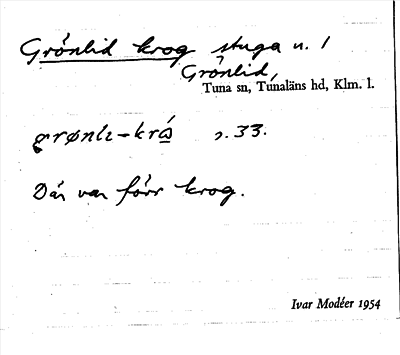 Grönlid krog stuga u. 1
Grönlid,
Tuna sn, Tunaläns hd, Klm. l.
grønlı-krå s. 33.
Där var förr krog.
Ivar Modéer 1954